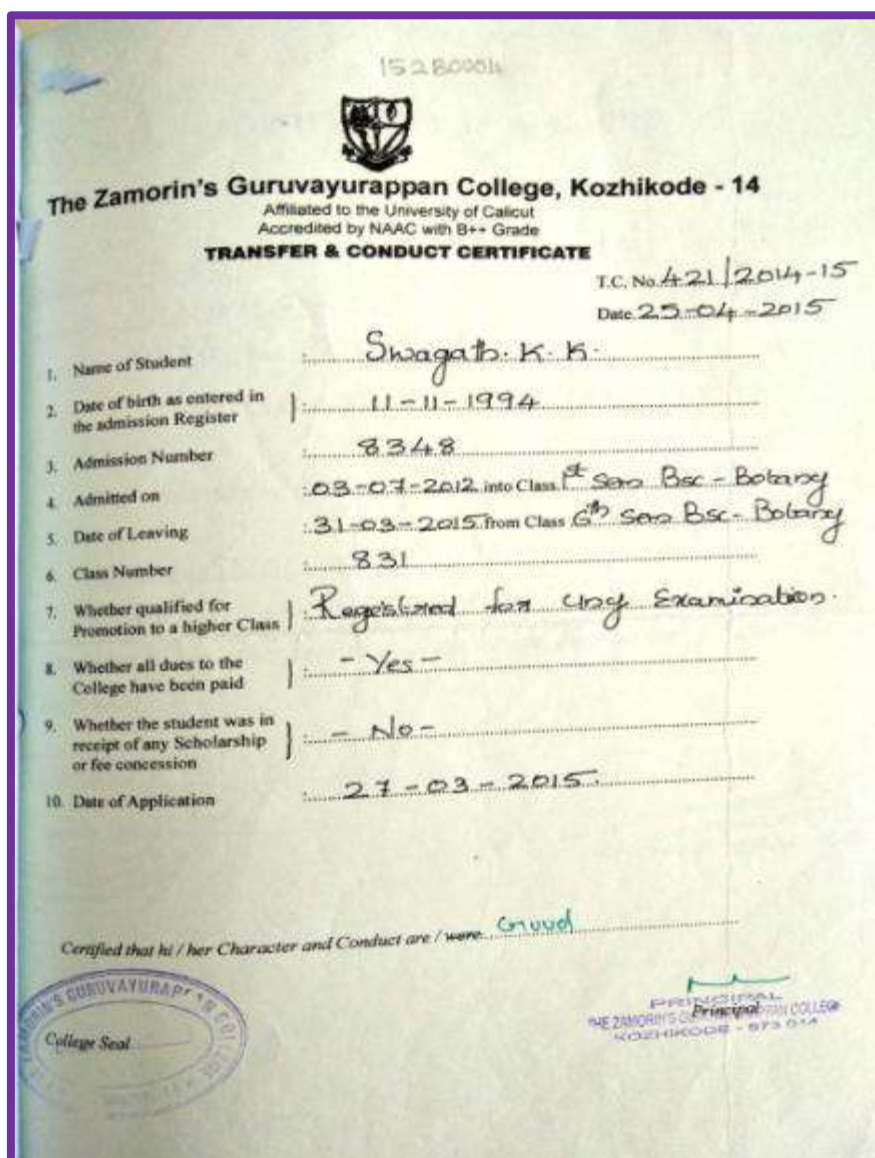 152B0004
The Zamorin's Guruvayurappan College, Kozhikode - 14
Affiliated to the University of Calicut
Accredited by NAAC with B++ Grade
TRANSFER & CONDUCT CERTIFICATE
T.C. No. 421/2014-15
Date 25-04-2015
1. Name of Student : Swagath. K. K.
2. Date of birth as entered in the admission Register } : 11-11-1994
3. Admission Number : 8348
4. Admitted on : 03-07-2012 into Class 1st Sem Bsc - Botany
5. Date of Leaving : 31-03-2015 from Class 6th Sem Bsc - Botany
6. Class Number : 831
7. Whether qualified for Promotion to a higher Class } : Registered for Uny Examination.
8. Whether all dues to the College have been paid } : - Yes -
9. Whether the student was in receipt of any Scholarship or fee concession } : - No -
10. Date of Application : 27-03-2015.
Certified that hi / her Character and Conduct are / were Good
ZAMORIN'S GURUVAYURAPPAN COLLEGE
College Seal
PRINCIPAL
Principal
THE ZAMORIN'S GURUVAYURAPPAN COLLEGE
KOZHIKODE - 673 014